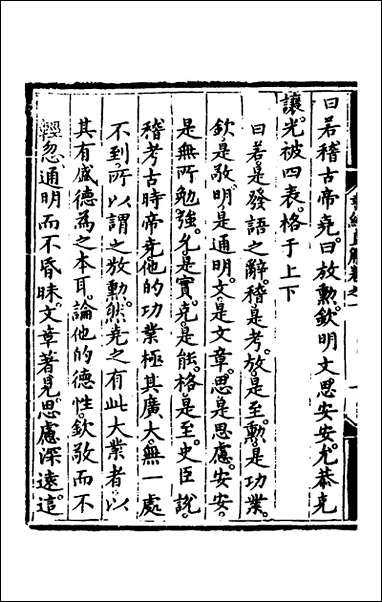 曰若稽古帝堯。曰放勲。欽明文思安安。允恭克
讓。光被四表。格于上下
曰若。是發語之辭。稽是考。放是至。勲是功業。
欽是敬。明是通明。文是文章。思是思慮。安安
是無所勉強。允是實。克是能。格是至。史臣說。
稽考古時帝堯他的功業極其廣大。無一處
不到。所以謂之放勲。然堯之有此大業者。以
其有盛德為之本耳。論他的德性。欽敬而不
輕忽。通明而不昏昧。文章著見。思慮深遠。這